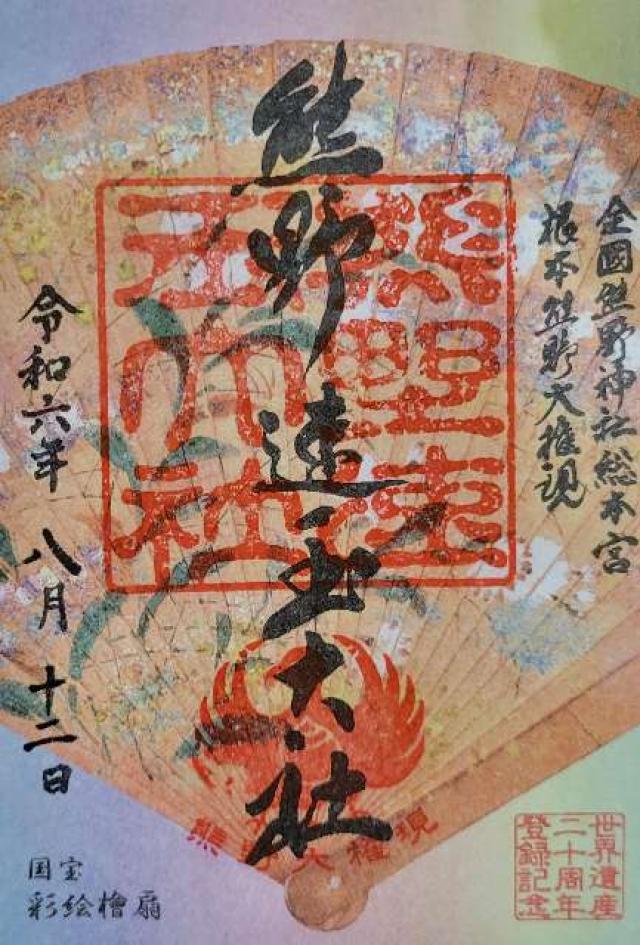 全國熊野神社総本宮
根本熊野大権現
熊野速玉大社
熊野速
玉大社
令和六年 八月 十二日
熊野大権現
国宝
彩絵檜扇
世界遺産
二十周年
登録記念